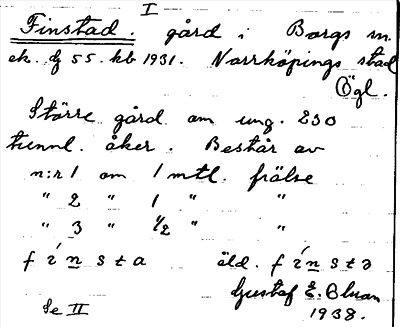 I
Finstad. gård i Borgs sn.
ek. bg 55. kb 1931. Norrköpings stad
Ögl.
Större gård om ung. 230
tunnl. åker. Består av
n:r 1 om 1 mtl. frälse
" 2 " 1 " "
" 3 " 1/2 " "
fínsta äld. fínstə
Gustaf E. Bluan
Se II 1938.